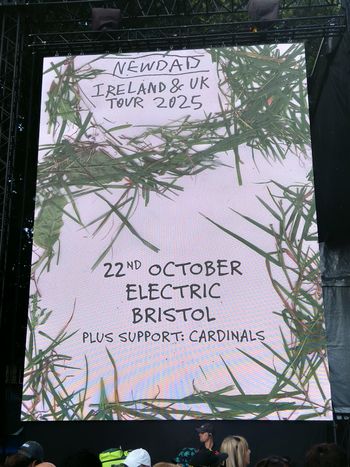 NEWDAD
IRELAND & UK
TOUR 2025
22ND OCTOBER
ELECTRIC
BRISTOL
PLUS SUPPORT: CARDINALS